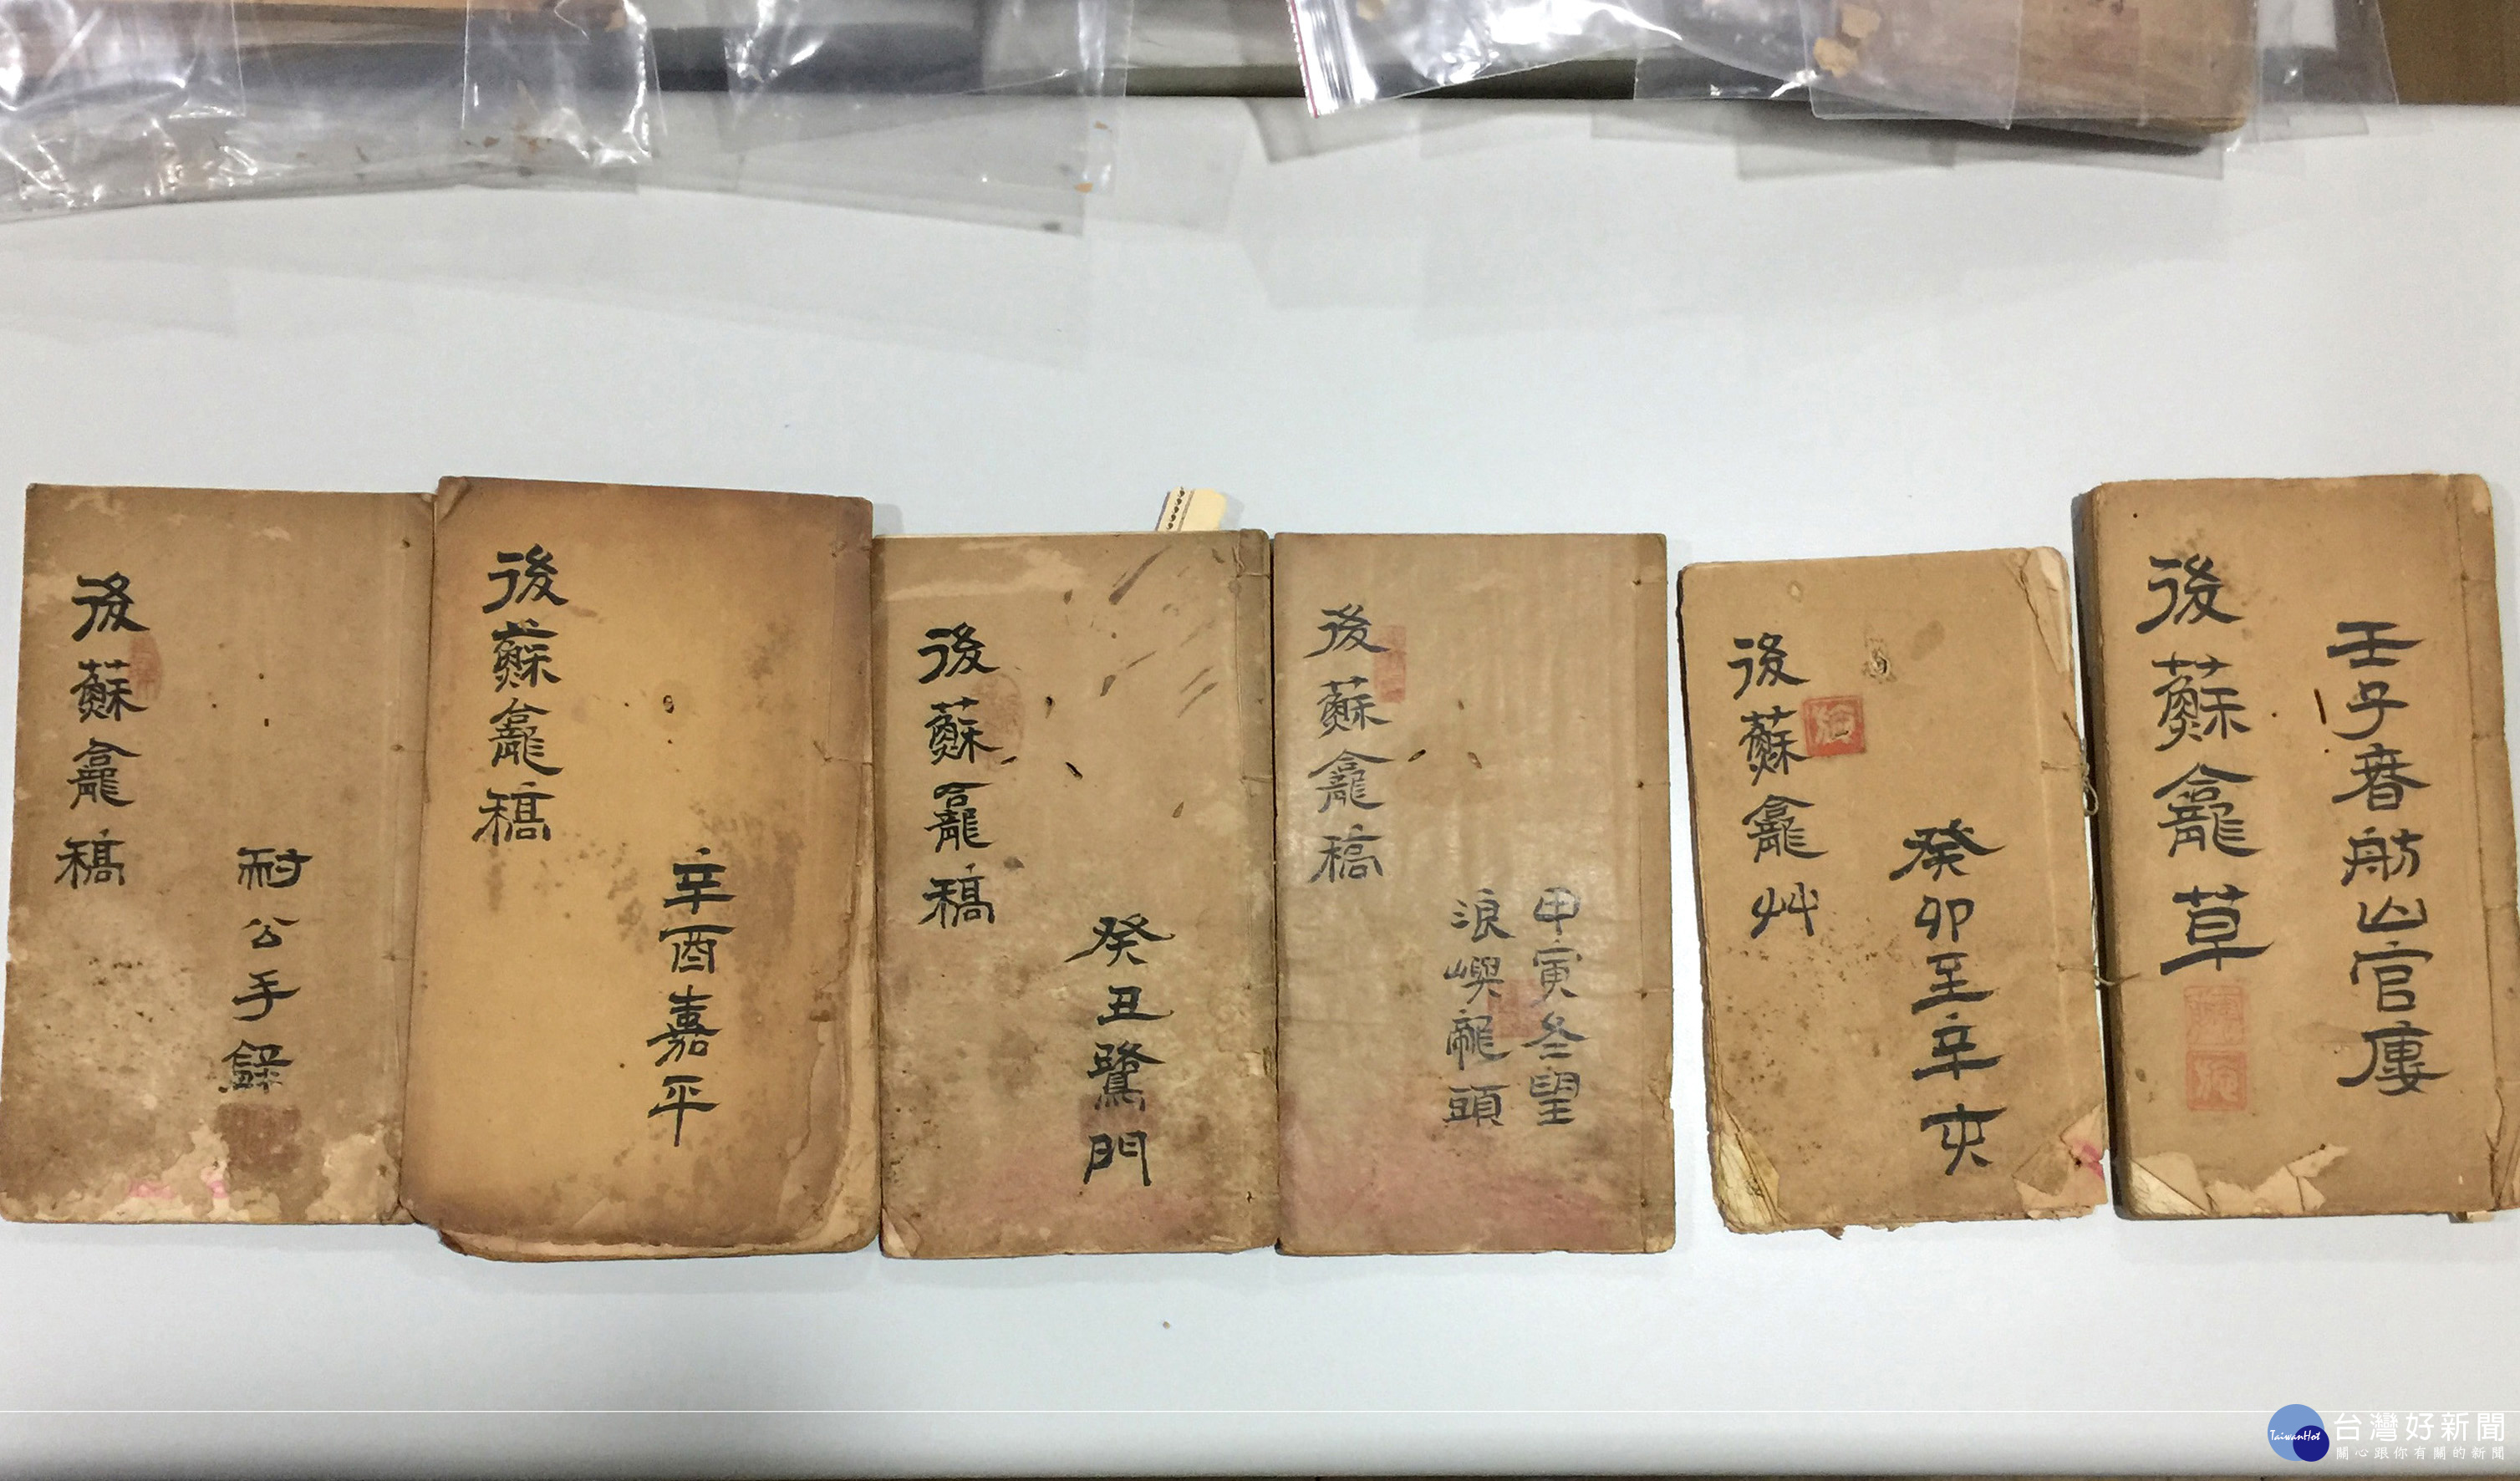 壬子春舫山官廔
後蘇龕草
癸卯至辛亥
後蘇龕艸
甲寅冬望
浪嶼龍頭
後蘇龕稿
癸丑鷺門
後蘇龕稿
辛酉嘉平
後蘇龕稿
耐公手錄
後蘇龕稿
TaiwanHot
台灣好新聞
關心跟你有關的新聞